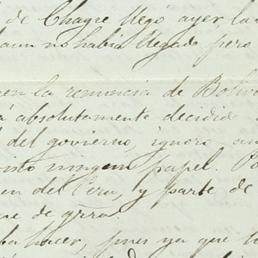 de Chagre llegó ayer, la
aun no habia llegado pero
en la renuncia de Boliv
á absolutamente decidido
del govierno, ignoro
ningun papel. Po
en del Peru, y parte de
de grra
hacer, pues ya que t